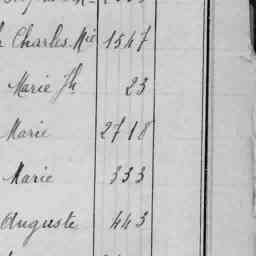 Charles Nie 1547
Marie Jh 23
Marie 2718
Marie 333
Auguste 443